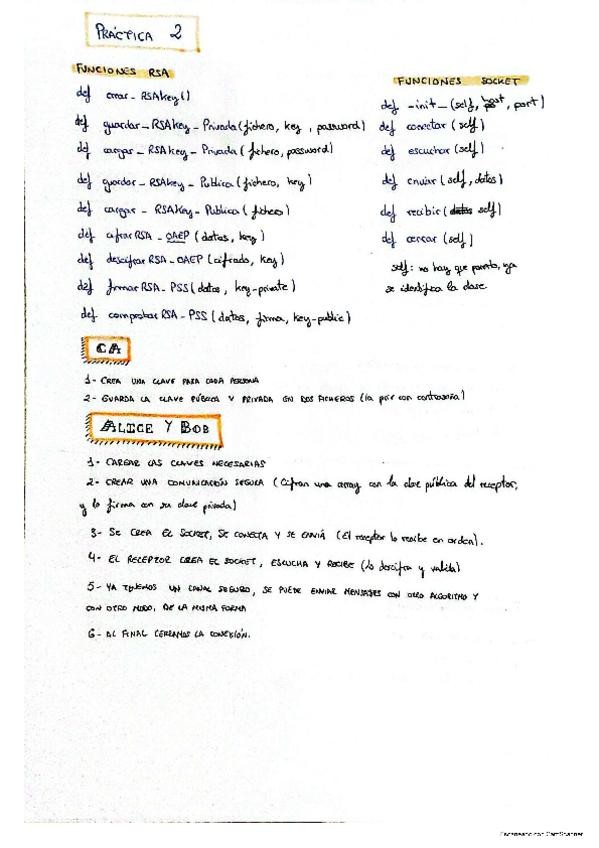 PRÁCTICA 2
FUNCIONES RSA
def crear_RSAKey()
def guardar_RSAKey_Privada(fichero, key, password)
def cargar_RSAKey_Privada(fichero, password)
def guardar_RSAKey_Publica(fichero, key)
def cargar_RSAKey_Publica(fichero)
def cifrarRSA_OAEP(datos, key)
def descifrarRSA_OAEP(cifrado, key)
def firmarRSA_PSS(datos, key-private)
def comprobarRSA_PSS(datos, firma, key-public)
FUNCIONES SOCKET
def _init_(self, host, port)
def conectar(self)
def escuchar(self)
def enviar(self, datos)
def recibir(datos self)
def cerrar(self)
self: no hay que ponerlo, ya
se identifica la clase
CA
1- CREA UNA CLAVE PARA CADA PERSONA
2- GUARDA LA CLAVE PÚBLICA Y PRIVADA EN DOS FICHEROS (la priv con contraseña)
ALICE Y BOB
1- CARGAR LAS CLAVES NECESARIAS
2- CREAR UNA COMUNICACIÓN SEGURA (Cifran una array con la clave pública del receptor,
y lo firma con su clave privada)
3- SE CREA EL SOCKET, SE CONECTA Y SE ENVÍA (El receptor lo recibe en orden).
4- EL RECEPTOR CREA EL SOCKET, ESCUCHA Y RECIBE (Lo descifra y valida)
5- YA TENEMOS UN CANAL SEGURO, SE PUEDE ENVIAR MENSAJES CON OTRO ALGORITMO Y
CON OTRO MODO, DE LA MISMA FORMA
6- AL FINAL CERRAMOS LA CONEXIÓN.
Escaneado con CamScanner